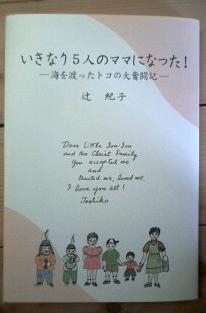 いきなり5人のママになった!
―海を渡ったトコの大奮闘記―
辻 紀子
Dear Little Son-Son
and the Christ Family
You accepted me
and
trusted me, loved me.
I love you all!
Toshiko